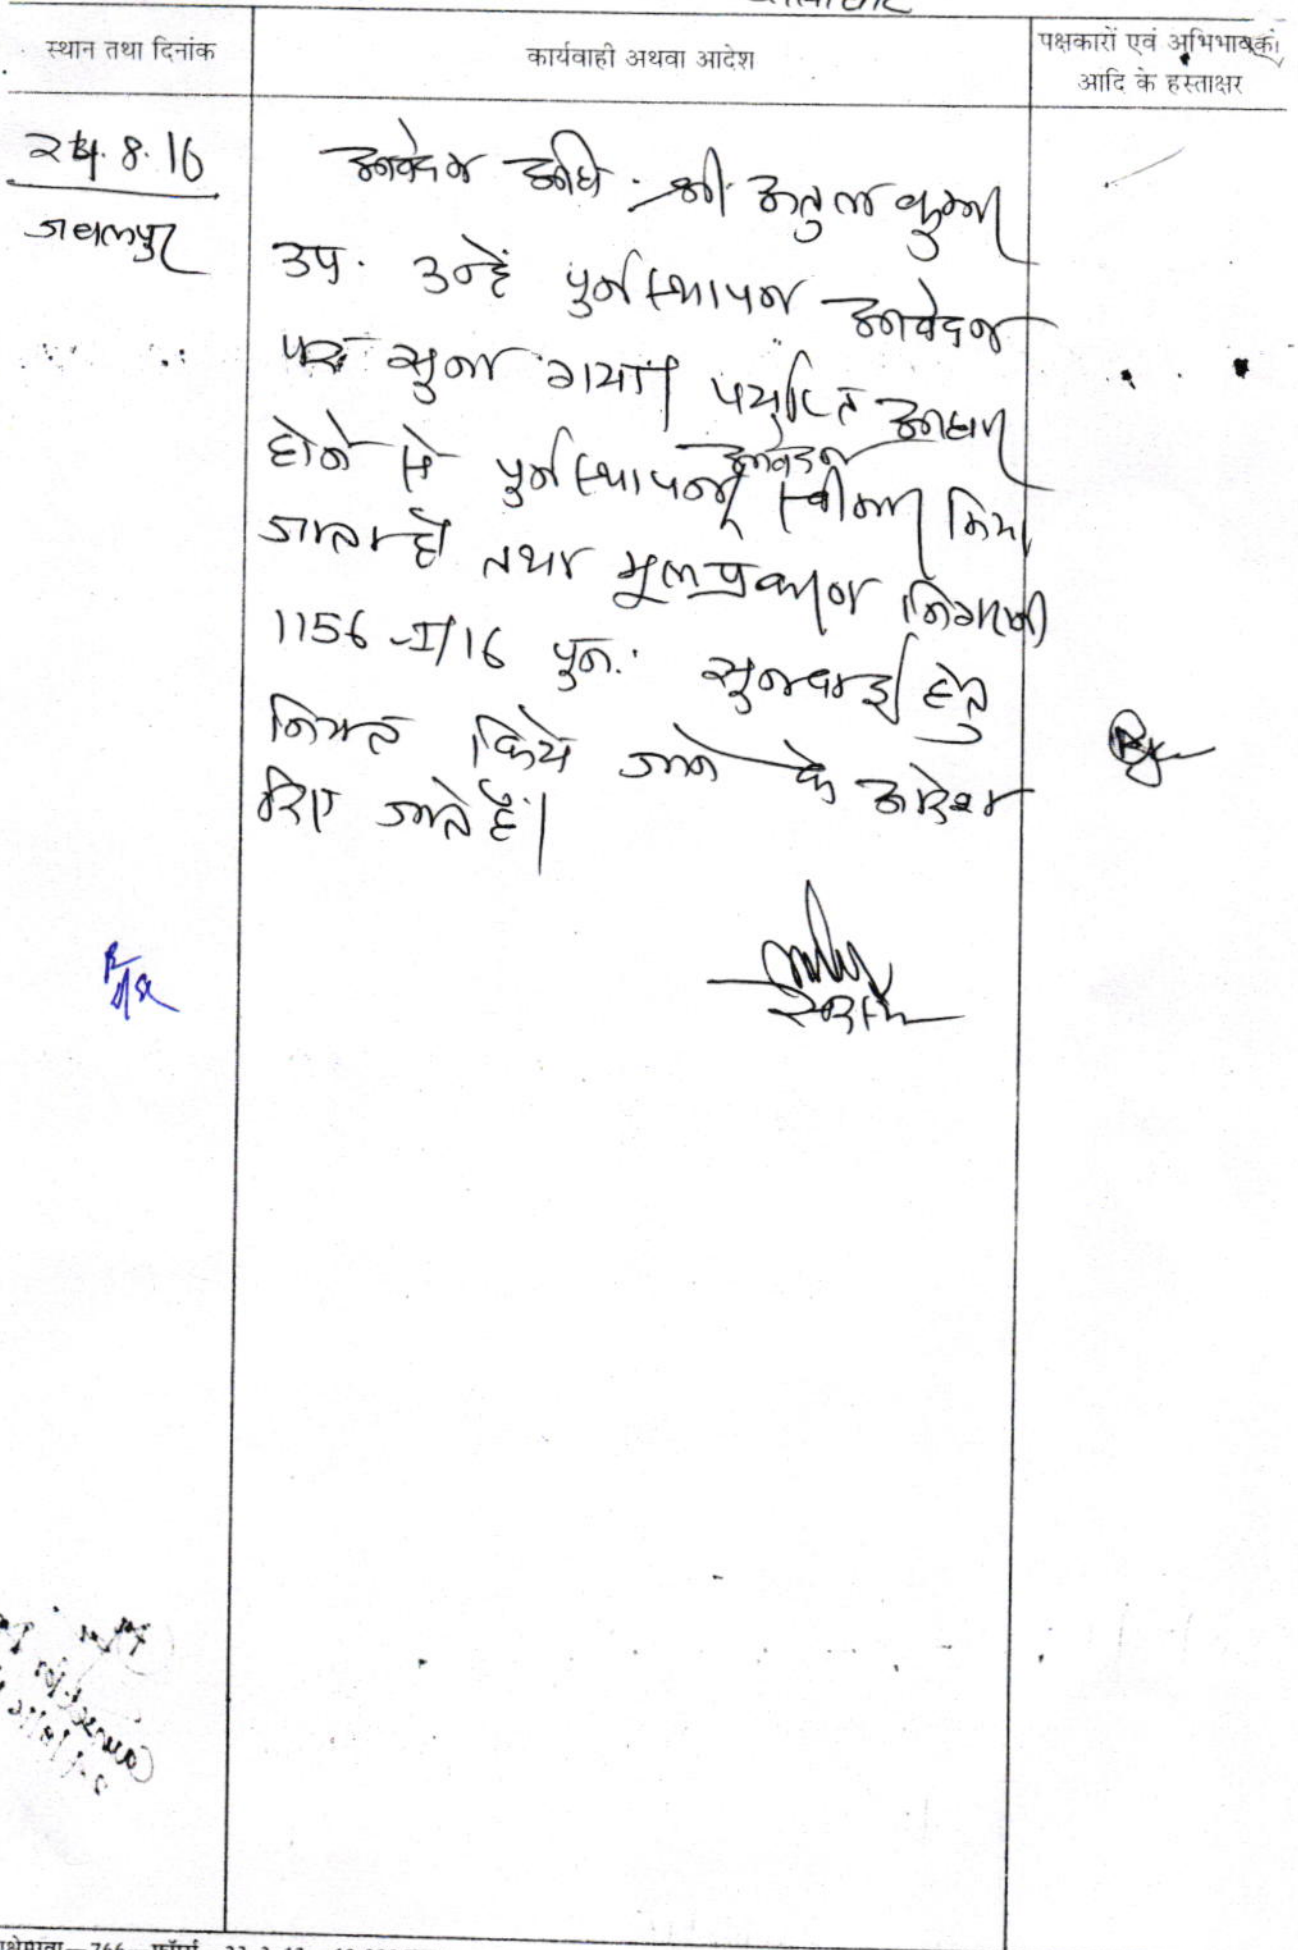 स्थान तथा दिनांक
कार्यवाही अथवा आदेश
पक्षकारों एवं अभिभाषकों
आदि के हस्ताक्षर
24.8.16
जबलपुर
आवेदक अधि. श्री अतुल कुमार
उप. उन्हें पुर्नस्थापन आवेदन
पर सुना गया। पर्याप्त आधार
होने से पुर्नस्थापन आवेदन स्वीकार किया
जाता है तथा मूल प्रकरण निगरानी
1156-I/16 पुन: सुनवाई हेतु
नियत किये जाने के आदेश
दिए जाते हैं।
सदस्य